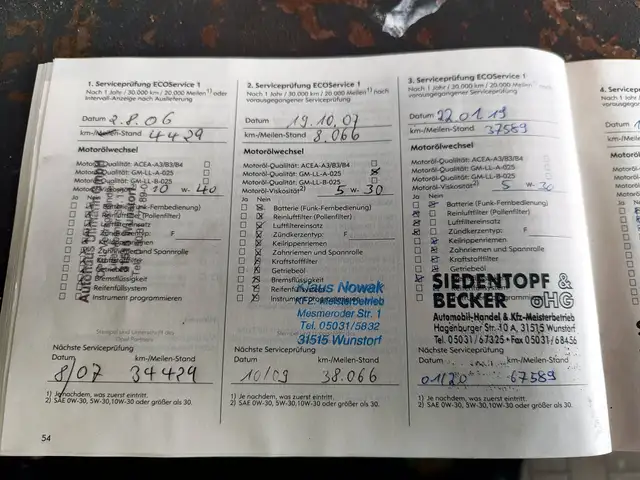 1. Serviceprüfung ECOService 1
Nach 1 Jahr / 30.000 km / 20.000 Meilen1) oder
Intervall-Anzeige nach Auslieferung
Datum 2.8.06
km-/Meilen-Stand 4429
Motorölwechsel
Motoröl-Qualität: ACEA-A3/B3/B4
Motoröl-Qualität: GM-LL-A-025
GM-LL-B-025
Motoröl-Viskosität2) 10 W- 40
Ja Nein
Luftfiltereinsatz
Zündkerzentyp: F
Keilrippenriemen
Zahnriemen und Spannrolle
Kraftstofffilter
Getriebeöl
Bremsflüssigkeit
Reifenfüllsystem
Instrument programmieren
Autohaus
Nächste Serviceprüfung
Datum km-/Meilen-Stand
8/07 34429
1) Je nachdem, was zuerst eintritt.
2) SAE 0W-30, 5W-30,10W-30 oder größer als 30.
54
2. Serviceprüfung ECOService 1
Nach 1 Jahr / 30.000 km / 20.000 Meilen1) nach
vorausgegangener Serviceprüfung
Datum 19.10.07
km-/Meilen-Stand 8.066
Motorölwechsel
Motoröl-Qualität: ACEA-A3/B3/B4
Motoröl-Qualität: GM-LL-A-025
GM-LL-B-025
Motoröl-Viskosität2) 5 W- 30
Ja Nein
Batterie (Funk-Fernbedienung)
Reinluftfilter (Pollenfilter)
Luftfiltereinsatz
Zündkerzentyp: F
Keilrippenriemen
Zahnriemen und Spannrolle
Kraftstofffilter
Getriebeöl
Bremsflüssigkeit
Klaus Nowak
KFZ-Meisterbetrieb
Mesmeroder Str. 1
Tel. 05031/5832
31515 Wunstorf
Nächste Serviceprüfung
Datum km-/Meilen-Stand
10/09 38.066
1) Je nachdem, was zuerst eintritt.
2) SAE 0W-30, 5W-30,10W-30 oder größer als 30.
3. Serviceprüfung ECOService 1
Nach 1 Jahr / 30.000 km / 20.000 Meilen1) nach
vorausgegangener Serviceprüfung
Datum 22.01.19
km-/Meilen-Stand 37589
Motorölwechsel
Motoröl-Qualität: ACEA-A3/B3/B4
Motoröl-Qualität: GM-LL-A-025
GM-LL-B-025
Motoröl-Viskosität2) 5 W- 30
Ja Nein
Batterie (Funk-Fernbedienung)
Reinluftfilter (Pollenfilter)
Luftfiltereinsatz
Zündkerzentyp: F
Keilrippenriemen
Zahnriemen und Spannrolle
Kraftstofffilter
Getriebeöl
SIEDENTOPF &
BECKER OHG
Automobil-Handel & Kfz-Meisterbetrieb
Hagenburger Str. 10 A, 31515 Wunstorf
Tel. 05031 / 67325 • Fax 05031 / 68456
Nächste Serviceprüfung
Datum km-/Meilen-Stand
01/20 67589
1) Je nachdem, was zuerst eintritt.
2) SAE 0W-30, 5W-30,10W-30 oder größer als 30.
4. Serv
Nach 1 Jahr